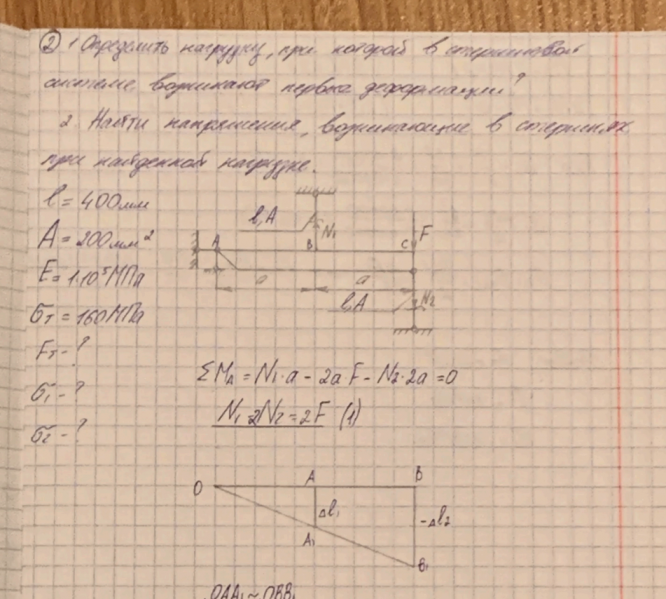 ② 1 Определить нагрузку, при которой в стержневой
системе возникают первые деформации?
2 Найти напряжения, возникающие в стержнях
при найденной нагрузке.
l = 400мм
A = 200мм²
E = 1·10⁵МПа
σт = 160МПа
Fт - ?
σ₁ - ?
σ₂ - ?
l,A
N₁
A
B
C
F
a
a
l,A
N₂
ΣMA = N₁·a - 2a F - N₂·2a = 0
N₁-2N₂ = 2F (1)
O
A
B
Δl₁
-Δl₂
A₁
B₁
OAA₁ ~ OBB₁